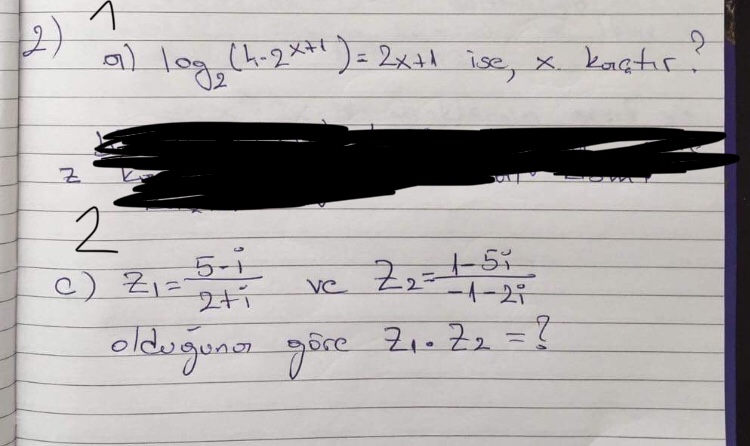 1
2)
a) log₂(4-2^(x+1)) = 2x+1 ise, x kaçtır?
z
2
c) Z₁ = (5-i)/(2+i) ve Z₂ = (1-5i)/(-1-2i)
olduğuna göre Z₁ . Z₂ = ?